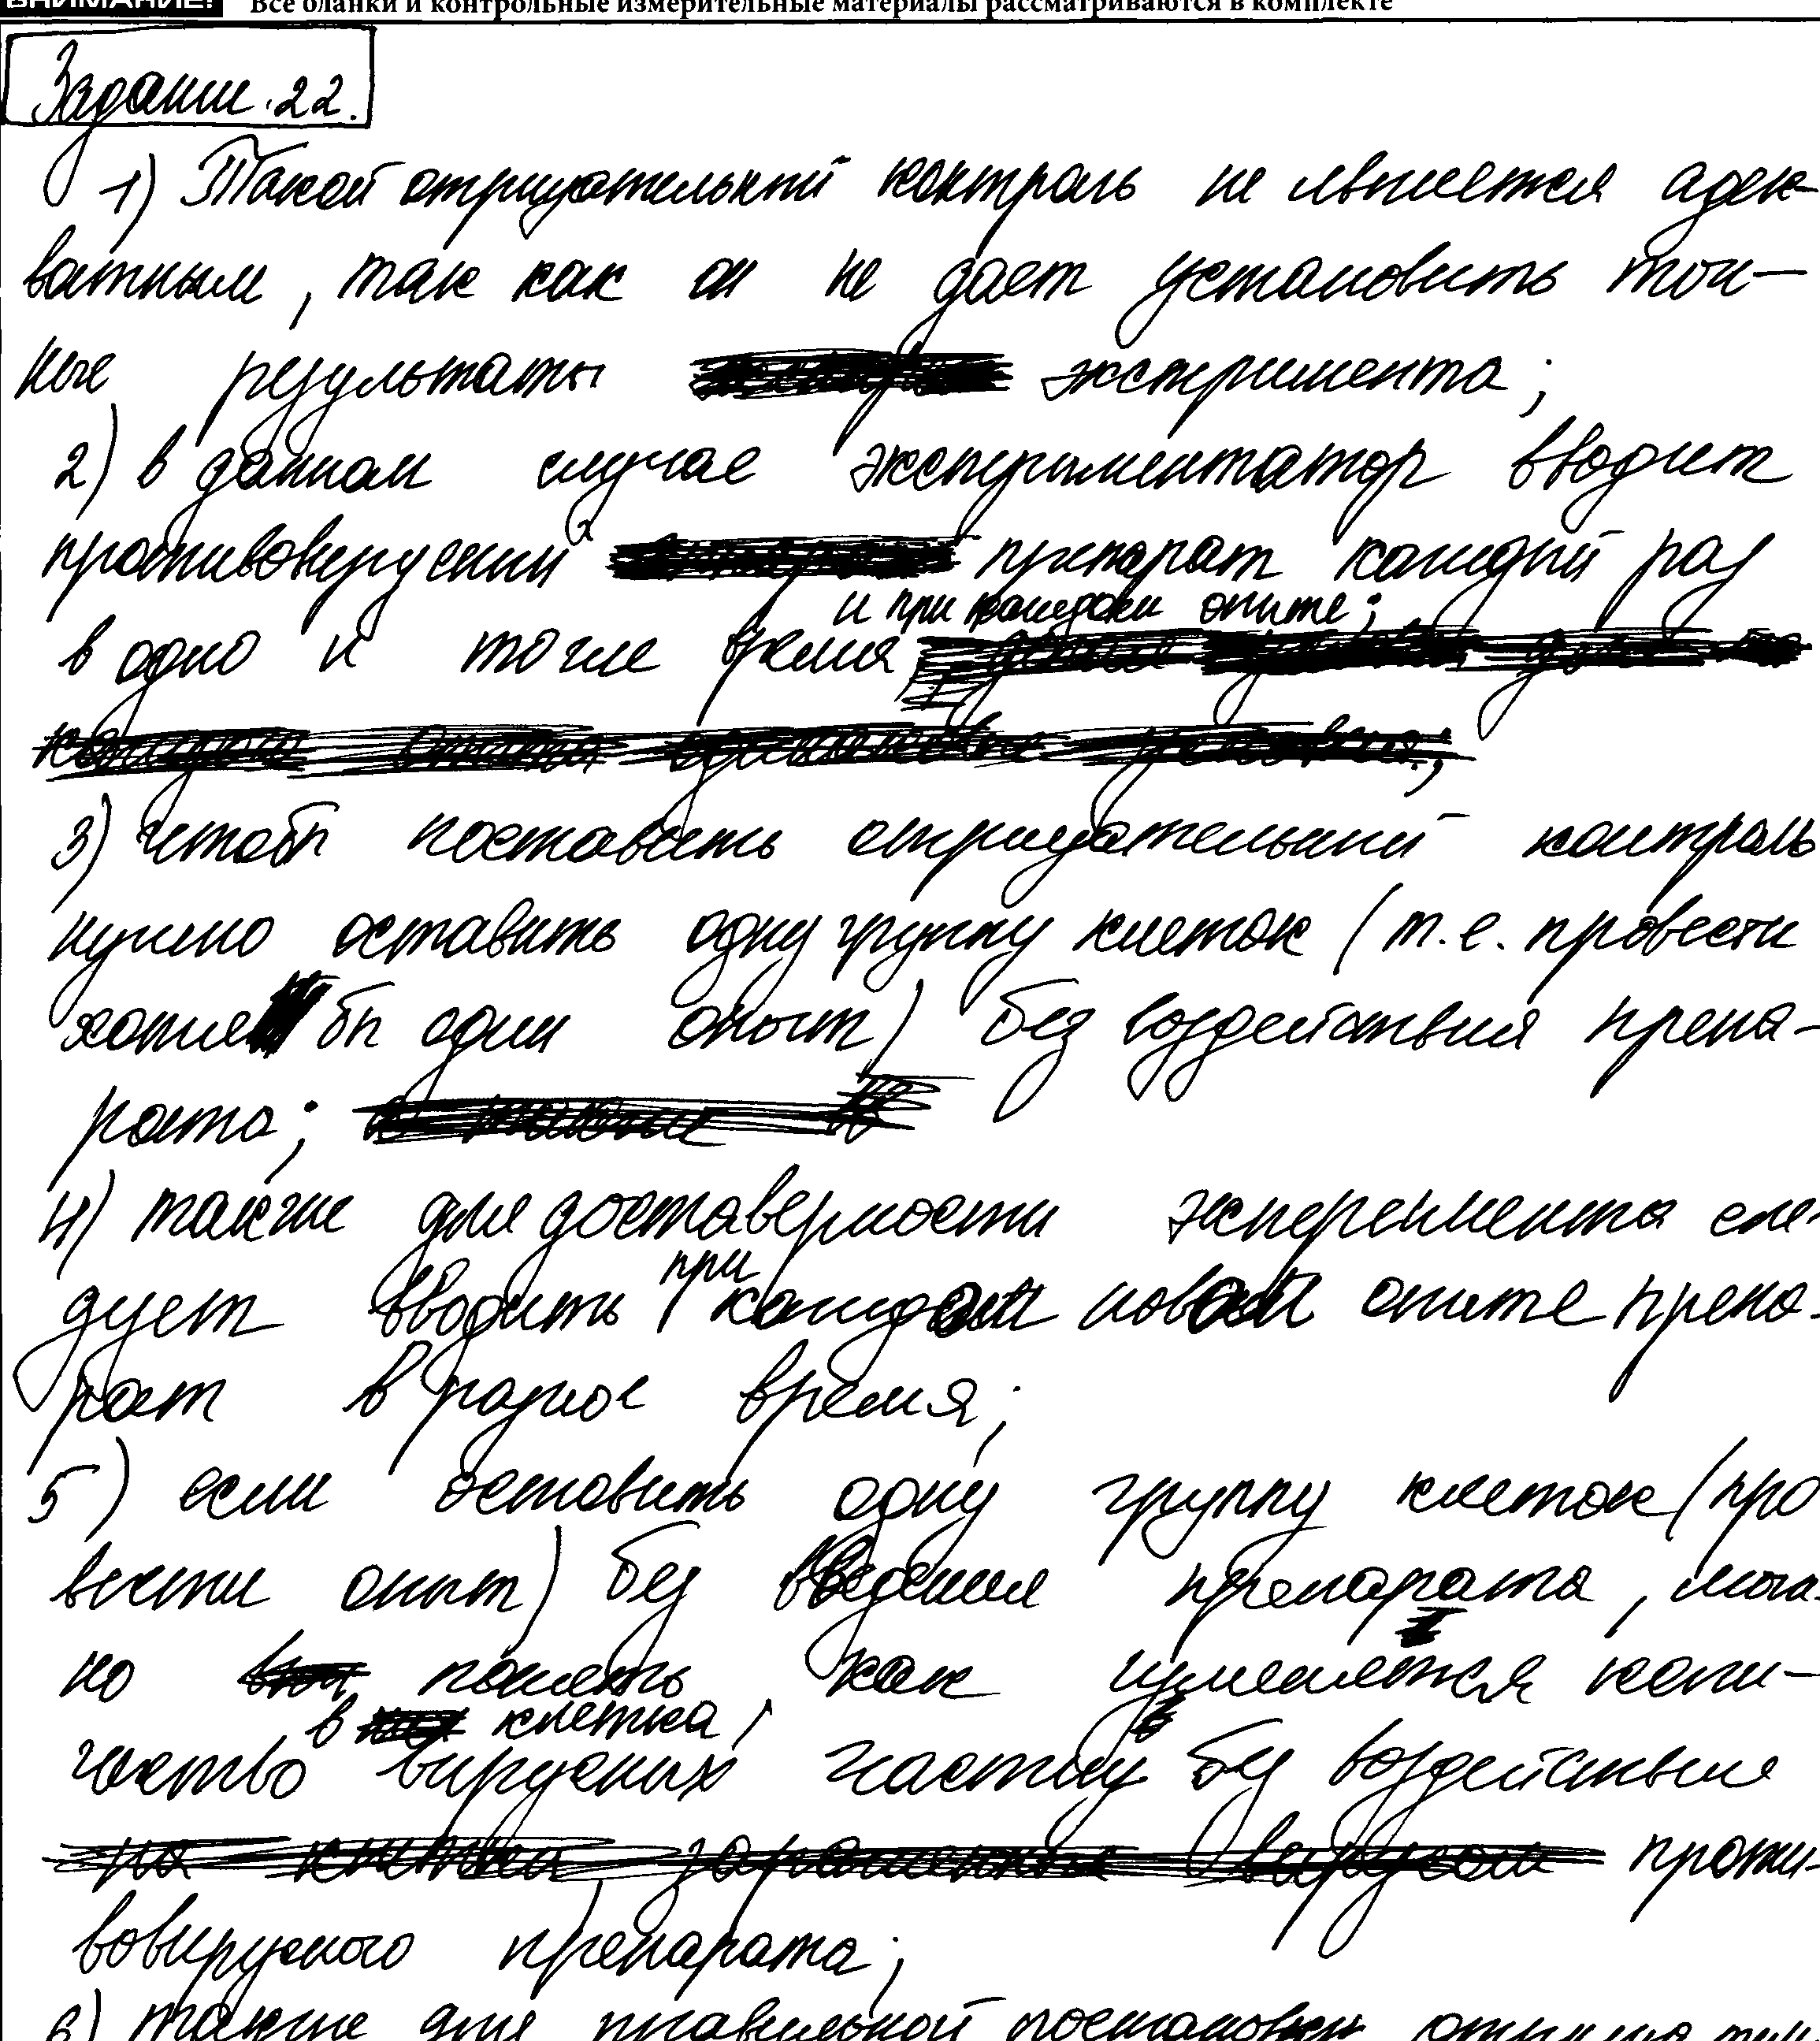 ВНИМАНИЕ! Все бланки и контрольные измерительные материалы рассматриваются в комплекте
Задание 22.
1) Такой отрицательный контроль не является адек-
ватным, так как он не дает установить точ-
ные результаты экстримента;
2) в данном случае экспериментатор вводит
противовирусный препарат каждый раз
и при каждом опыте;
в одно и тоже время,
3) чтобы поставить отрицательный контроль
нужно оставить одну группу клеток (т.е. провести
хотя бы один опыт) без воздействия препа-
рата;
4) также для доставерности эксперемента сле-
дует вводить при каждом новом опыте препа-
рат в разное время;
5) если оставить одну группу клеток (про
вести опыт) без введения препарата, мож-
но понять как изменяется коли-
в клетках
чество вирусных частиц без воздействия
проти-
вовирусного препарата;
6) также для правильной постановки